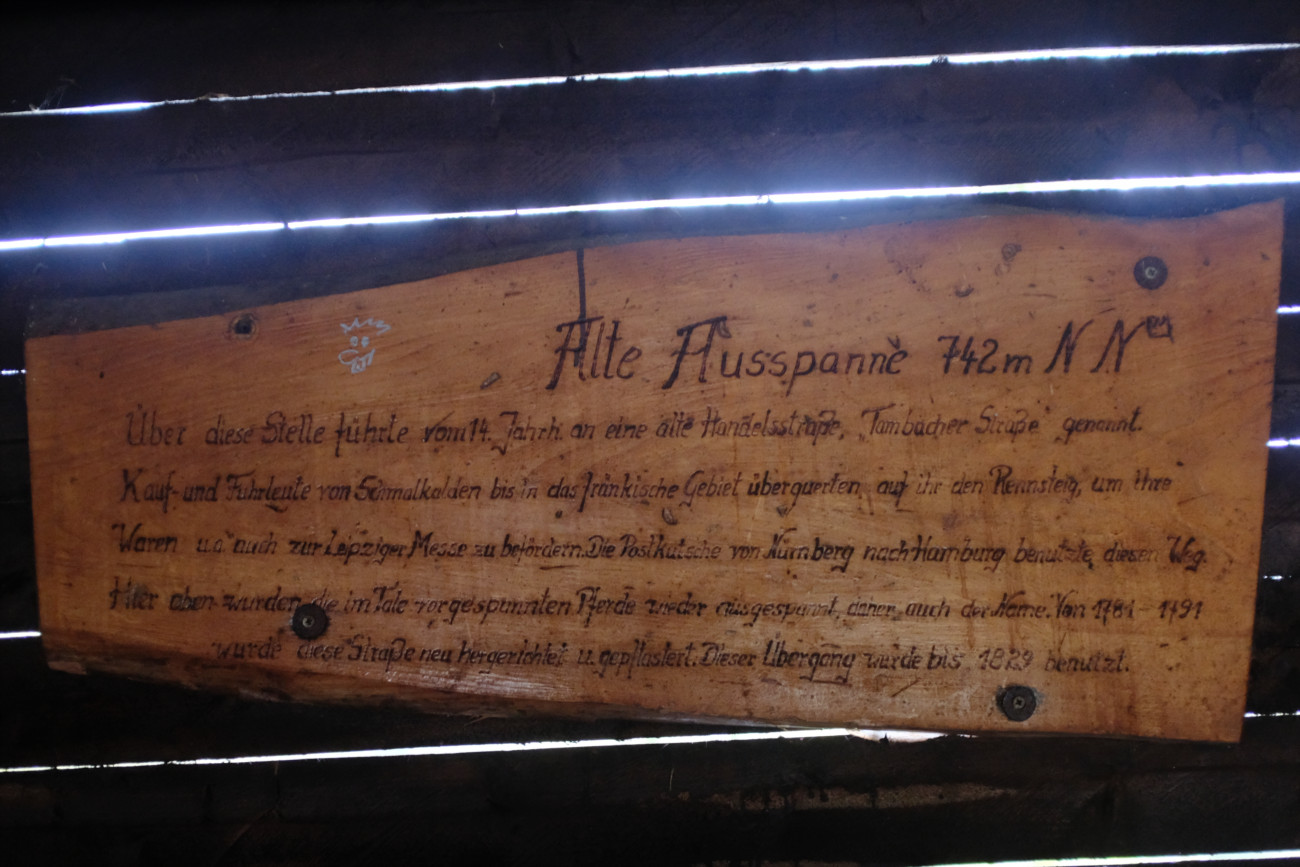 Alte Ausspanne 742m NN
Über diese Stelle führte vom 14. Jahrh. an eine alte Handelsstraße, "Tambacher Straße" genannt.
Kauf- und Fuhrleute von Schmalkalden bis in das fränkische Gebiet überquerten auf ihr den Rennsteig, um ihre
Waren u.a. auch zur Leipziger Messe zu befördern. Die Postkutsche von Nürnberg nach Hamburg benutzte diesen Weg.
Hier oben wurden die im Tale vorgespannten Pferde wieder ausgespannt, daher auch der Name. Von 1781 - 1791
wurde diese Straße neu hergerichtet u. gepflastert. Dieser Übergang wurde bis 1829 benutzt.